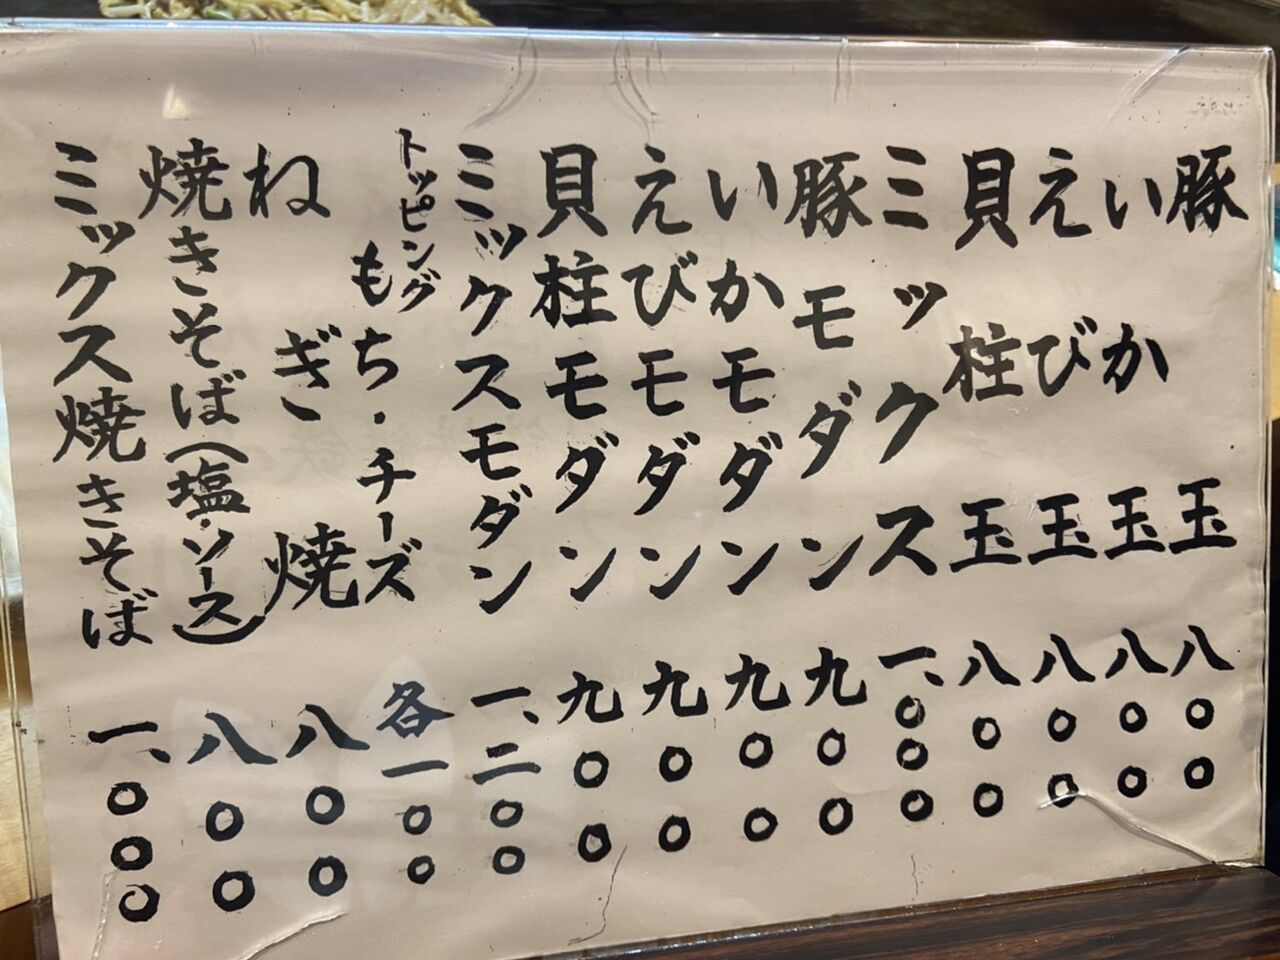 豚玉 八〇〇
いか玉 八〇〇
えび玉 八〇〇
貝柱玉 八〇〇
ミックス 一、〇〇〇
豚モダン 九〇〇
いかモダン 九〇〇
えびモダン 九〇〇
貝柱モダン 九〇〇
ミックスモダン 一、二〇〇
トッピング
もち・チーズ 各一〇〇
ねぎ焼 八〇〇
焼きそば(塩・ソース) 八〇〇
ミックス焼きそば 一、〇〇〇